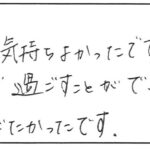 気持ちよかったです
過ごすことがで
たかったです.